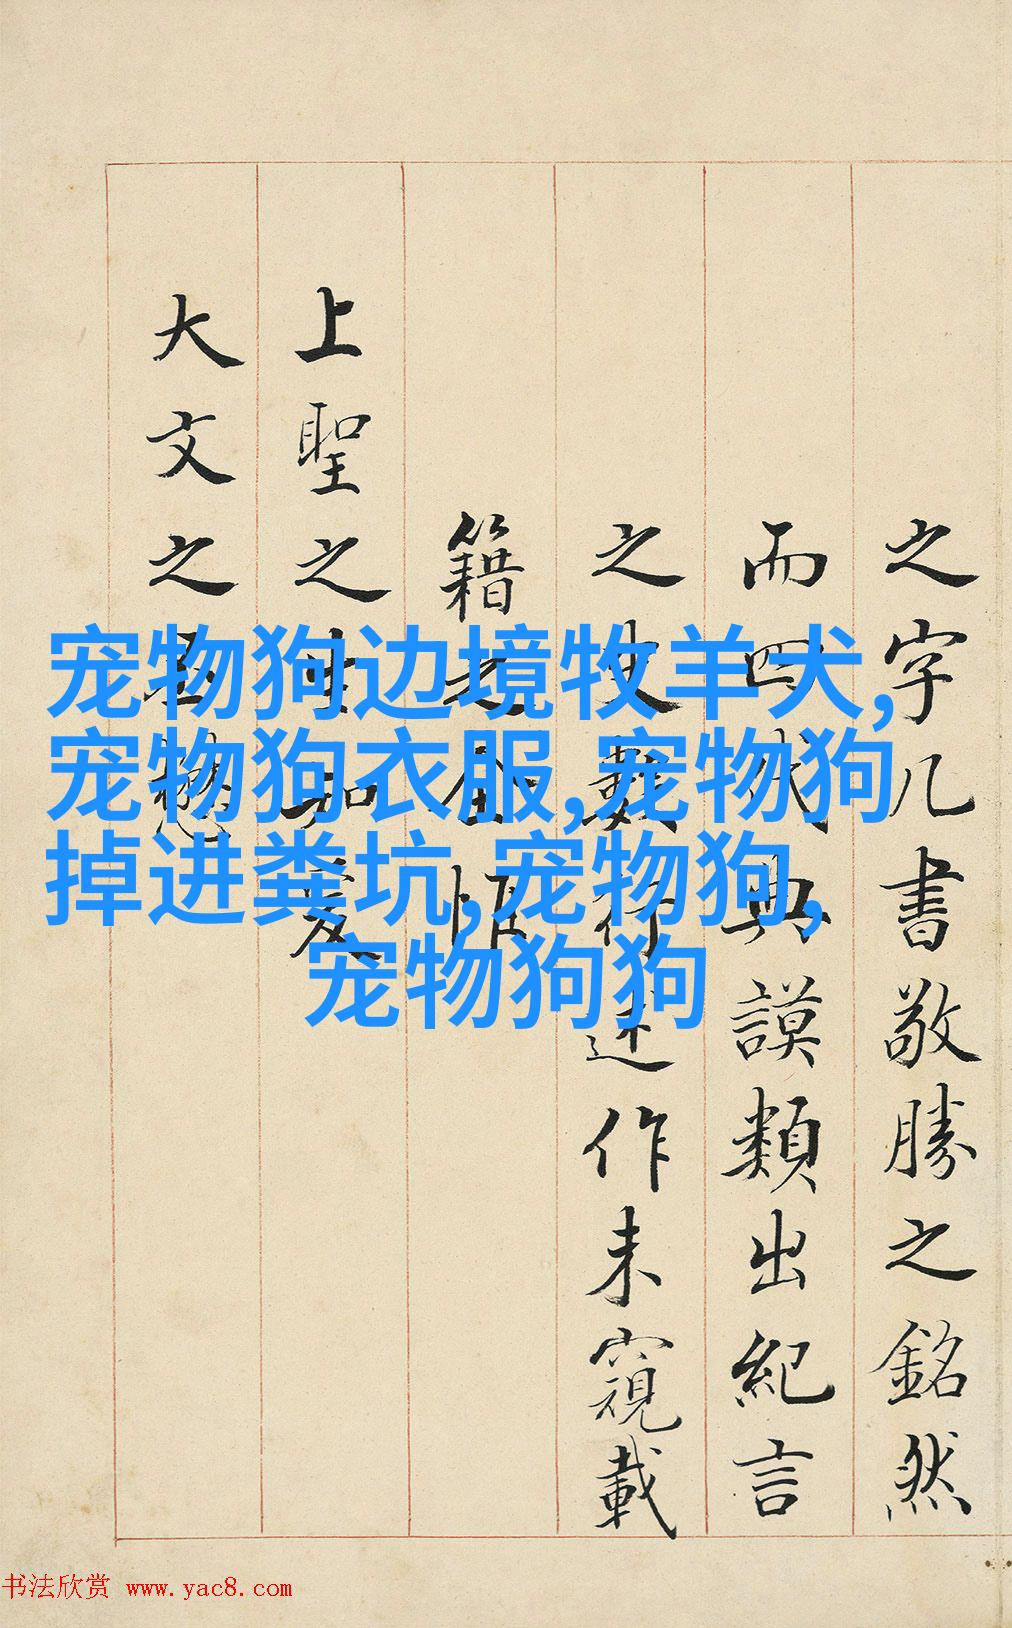 之字几書敬勝之銘然
而四代典謨類出紀言
之史數行述作未窺載
籍之全惟
上聖之生知爰
大文之
宠物狗边境牧羊犬,
宠物狗衣服,宠物狗
掉进粪坑,宠物狗,
宠物狗狗
书法欣赏 www.yac8.com